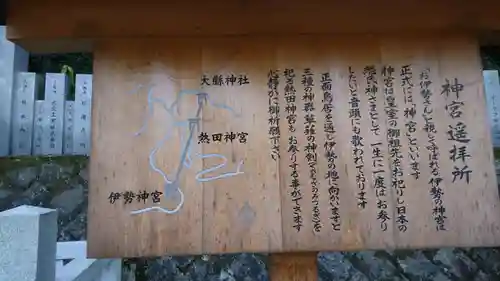 神宮遥拝所
「お伊勢さん」と親しく呼ばれる伊勢の神宮は
正式には「神宮」といいます
神宮は皇室の御祖先をお祀りし日本の
総氏神さまとして一生に一度はお参り
したいと音頭にも歌われております
正面鳥居を通し伊勢の地に向かいますと
三種の神器草薙の神剣(くさなぎのみつるぎ)を
祀る熱田神宮もお参りする事ができます
心静かに御祈願下さい
大縣神社
熱田神宮
伊勢神宮